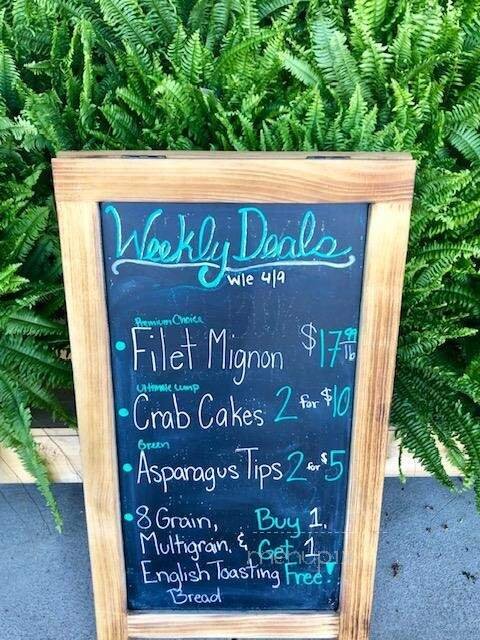 Weekly Deals
w/e 4/9
Premium Choice
Filet Mignon $17.99 lb
Ultimate Lump
Crab Cakes 2 for $10
Green
Asparagus Tips 2 for $5
8 Grain, Buy 1,
Multigrain, & Get 1
English Toasting Free!
Bread